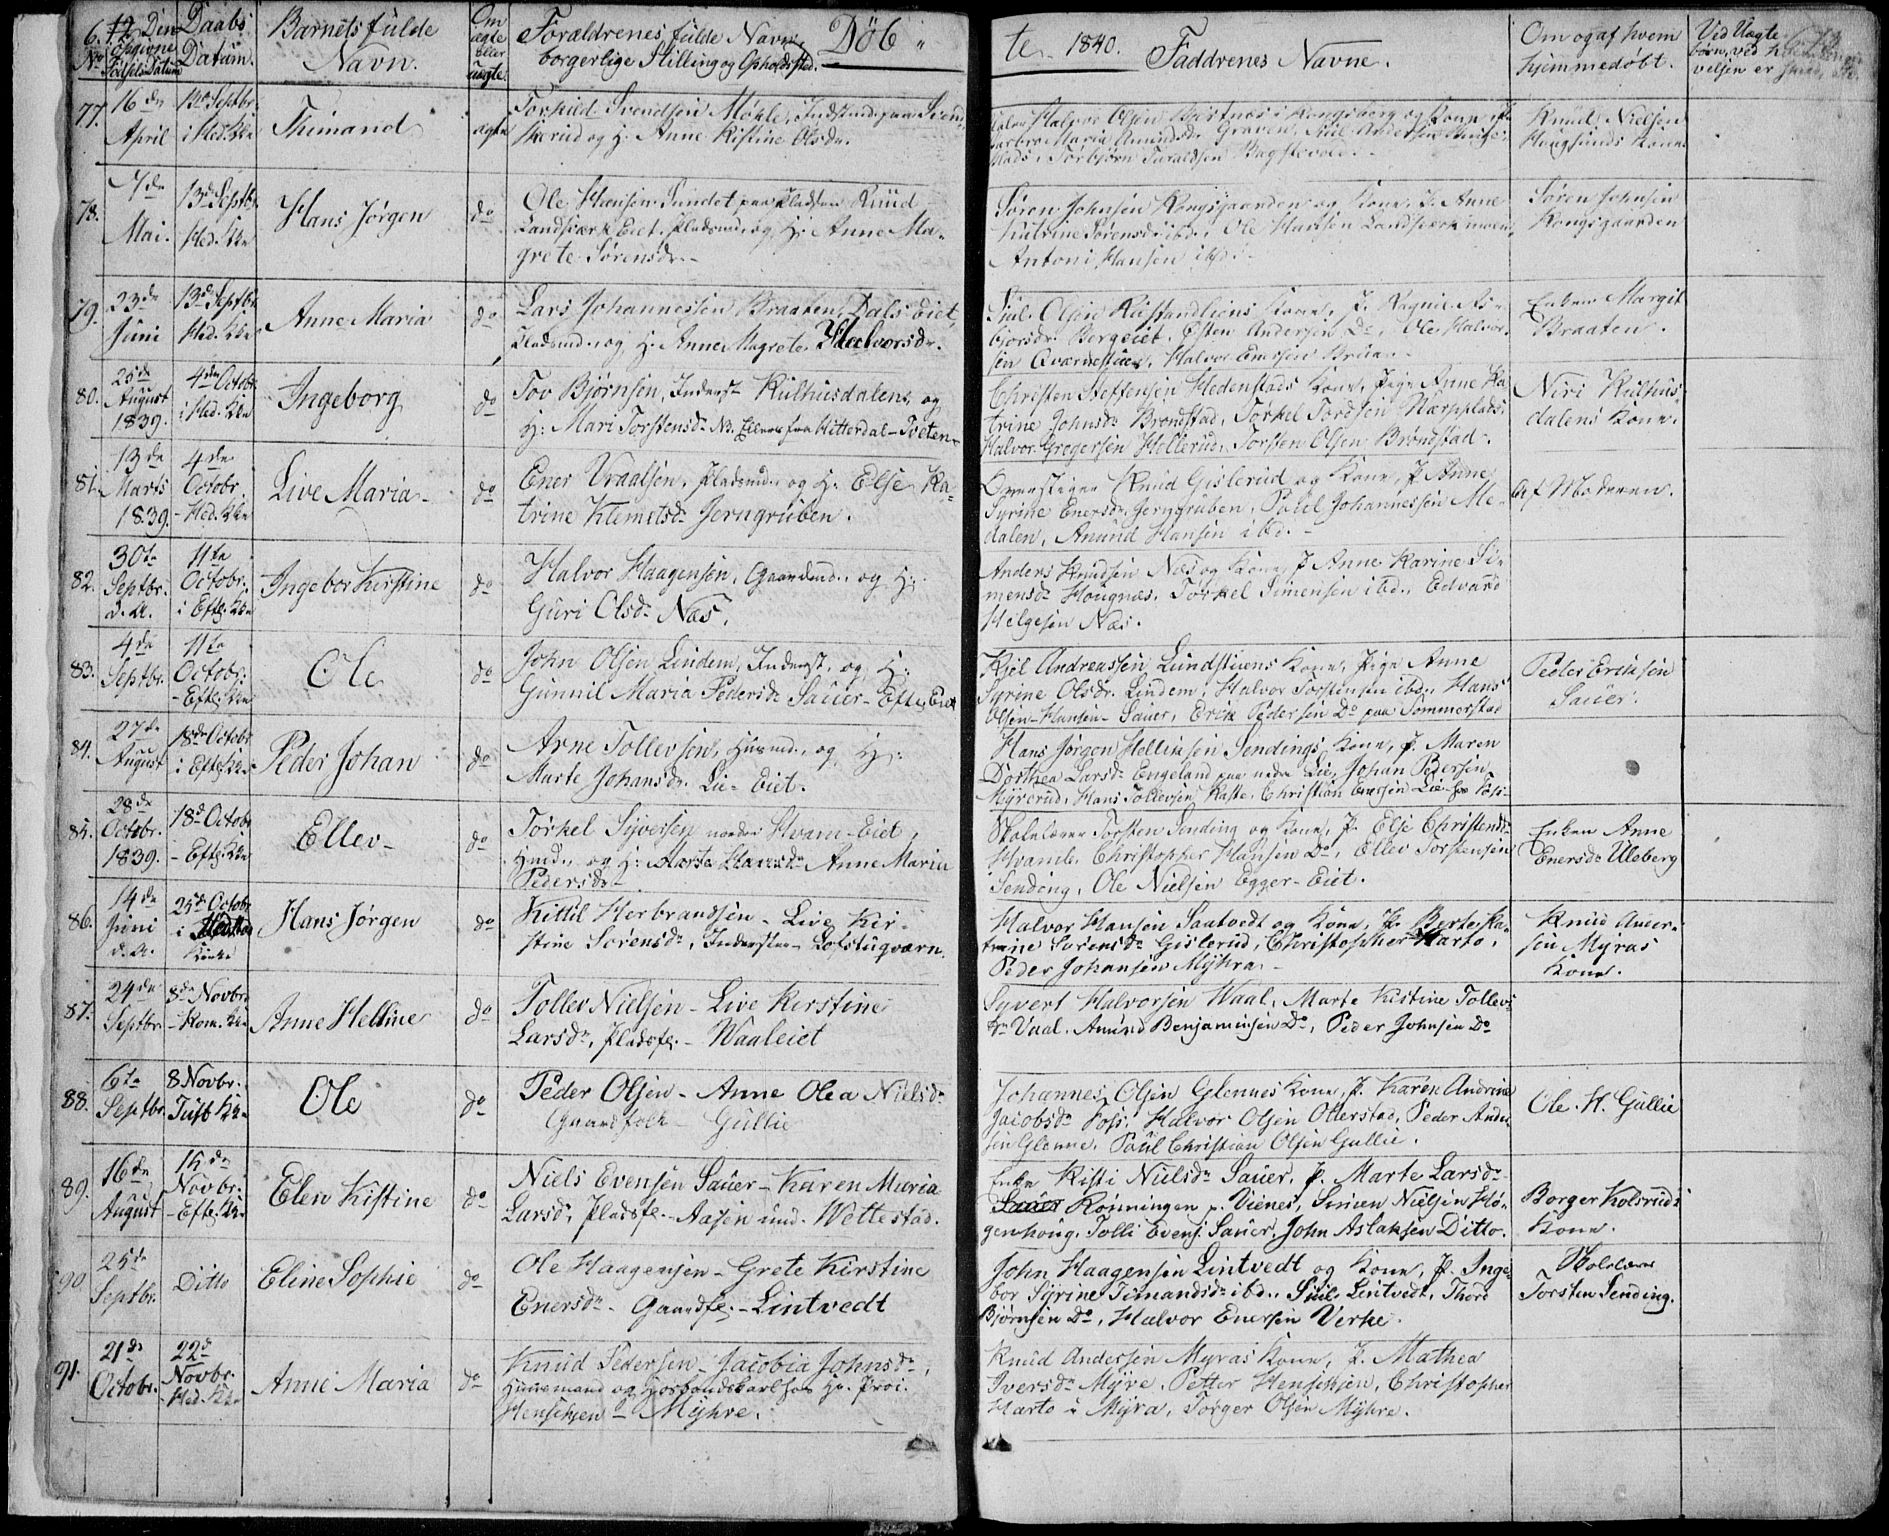 6. 12 Den opgivne Fødsels Datum
No
Daabs Datum.
Barnets fulde Navn.
Om ægte eller uægte
Forældrenes fulde Navn, borgerlige Stilling og Opholdssted.
Døb
te 1840.
Faddrenes Navne.
Om og af hvem hjemmedøbt.
Ved Uægte
77. 16de April
13de Septbr. i Hed. Kke
Thimand
ægte
Torkild Svendsen Møhle, Indst
og H: Anne Kistine Olsdr.
Halvor Olsen
i Kongsberg og Kone, P.
Maria Amundsdr Graven,
Torbjørn Taraldsen
Knud Nielsen
Haugsunds Kone
78. 7de Mai.
13de Septbr. Hed. Kke
Hans Jørgen
do
Ole Hansen Sundet paa Pladsen Ruud
Landsværk Eiet, Pladsmd. og H: Anne Ma-
grete Sørensdr.
Søren Johnsen Kongsgaarden og Kone, P. Anne
Katrine Sørensdr ibd., Ole Hansen Landsværk
Antoni Hansen ibd.
Søren Johnsen
Kongsgaarden
79. 23de Juni
13de Septbr. Hed. Kke
Anne Maria
do
Lars Johannessen Braaten, Dals Eiet,
Pladsmd. og H: Anne Magrete Halvorsdr.
Juul Olsen
Kone, P.
bjørsdr. Bergeiet, Østen Andersen Do, Ole Halvor-
sen Qværnestuen, Halvor Enersen
Enken Margit
Braaten.
80. 25de August 1839.
4de Octobr. i Hed. Kke
Ingeborg
do
Tov Bjørnsen, Inderst Kulhusdalen, og
H: Mari Torstensdr NB. Ellers fra Hitterdal - Tveten
Christen Steffensen Hedenstads Kone, Pige Anne Ka-
trine Johnsdr Brønstad, Torkel Tordsen
Halvor Gregersen Hollerud, Torsten Olsen Brøndstad.
Niri Kulhus-
dalens Kone.
81. 13de Marts 1839.
4de Octobr. - Hed. Kke
Live Maria
do
Ener Vraalsen, Pladsmd. og H: Else Ka-
trine Klemetsdr Jerngruben.
Overstiger Knud Gislerud og Kone, P. Anne
Syrine Enersdr. Jerngruben, Paul Johannessen Me-
dalen, Amund Hansen ibd.
Af Moderen.
82. 30te Septbr. d. A.
11te Octobr. i Eftl. Kke
Ingebor Kirstine
do
Halvor Haagensen, Gaardmd. og H:
Guri Olsdr Næs.
Anders Knudsen Næs og Kone, P. Anne Karine Si-
mensdr Hougnæs, Torkel Simensen ibd., Edvard
Helgesen Næs.
83. 4de Septbr.
11te Octobr. - Eftl. Kke
Ole
do
John Olsen Lindem, Inderst, og H:
Gunnil Maria Pedersdr Sauer - Eftel. Eiet
Kjel Andreassen Lundstuens Kone, Pige Anne
Syrine Olsdr. Lindem, Halvor Torstensen ibd., Hans
Olsen - Hansen - Sauer, Erik Pedersen Do paa Sommerstad
Peder Eriksen
Sauer.
84. 27de August
18de Octobr. i Eftl. Kke
Peder Johan
do
Arne Tollevsen, Husmd., og H:
Marte Johansdr. Lie - Eiet.
Hans Jørgen Helliksen Sendings Kone, P. Maren
Dorthea Larsdr Engeland paa nedre Lie, Johan Pedersen
Myrerud, Hans Tollevsen Raste, Christian Enersen Lie fra Foss
85. 28de Octobr. 1839.
18de Octobr - Eftl. Kke
Ellev
do
Torkel Syversen nordre Hvam - Eiet
Hmd. og H: Marte Hansdr Anne Maria
Pedersdr
Skolelærer Torsten Sending og Kone, P. Else Christensdr
Hvamb, Christopher Hansen Do, Ellev Torstensen
Sending, Ole Nielsen Egger - Eiet.
Enken Anne
Enersdr Uleberg
86. 14de Juni d. A.
25de Octobr i Hed Kirke
Hans Jørgen
do
Kittil Herbrandsen - Live Kir-
stine Sørensdr, Inderster - Lofstuqværn.
Halvor Hansen Saatvedt og Kone, P. Berte Ka-
trine Sørensdr Gislerud, Christopher Harto,
Peder Johansen Myhra
Knud Ander-
sen Myras
Kone.
87. 24de Septbr.
8de Novbr. - Kom. Kke
Anne Helline
do
Tollev Nielsen - Live Kirstine
Larsdr, Pladsfl. - Waaleiet
Syvert Halvorsen Waal, Marte Kistine Tollevs-
dr Vaal, Amund Benjaminsen Do, Peder Johnsen Do
88. 6te Septbr.
8 Novbr. Tuft Kke
Ole
do
Peder Olsen - Anne Olea Nielsdr
Gaardfolk - Gullie
Johannes Olsen Glennes Kone, P. Karen Andrine
Jacobsdr Foss, Halvor Olsen Ollerstad, Peder Ander-
sen Glenne, Paul Christian Olsen Gullie.
Ole. H. Gullie
89. 16de August
15de Novbr. - Eftl. Kke
Elen Kistine
do
Niels Evensen Sauer - Karen Maria
Larsdr, Pladsfl. - Aasen und. Wettestad.
Enke Kisti Nielsdr Sauer, P. Marte Larsdr
Sauer Rønningen p. Vienes, Simen Nielsen Hø-
genhoug, Tolli Evens. Sauer, John Aslaksen Ditto.
Borger Kolsruds
Kone.
90. 25de Septbr.
Ditto
Eline Sophie
do
Ole Haagensen - Grete Kirstine
Enersdr - Gaardfl. - Lintvedt
John Haagensen Lintvedt og Kone, P. Inge-
bor Syrine Timandsdr ibd., Juul Lintvedt, Thore
Bjørnsen Do, Halvor Enersen Verke.
Skolelærer
Torsten Sending.
91. 21de Octobr.
22d Novbr. Hed. Kke
Anne Maria
do
Knud Pedersen - Jacobia Johnsdr
Huusmand og Forbandskarl hos Hr. Proi.
Henschjen - Myhre.
Knud Andersen Myras Kone, P. Mathea
Iversdr Myre, Petter Henschjen, Christopher
Harto i Myra, Torger Olsen Myhre.